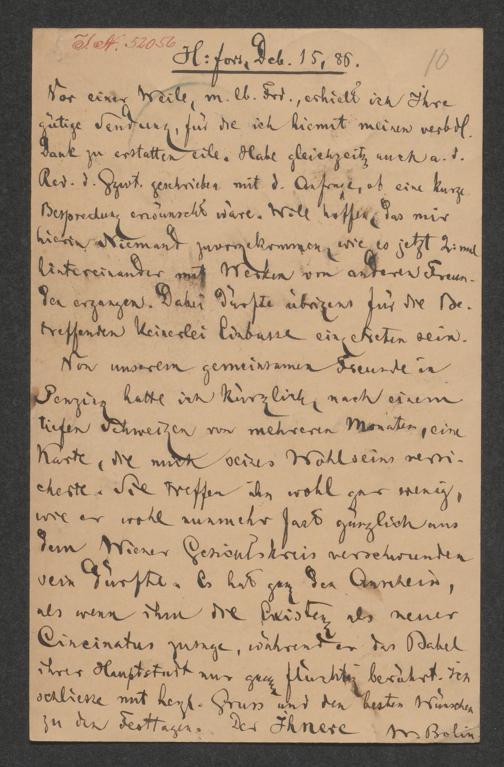 I. N. 52056
10
H:fors, Deb. 15, 86.
Vor einer Weile, m. lb. Frd., erhielt ich Ihre
gütige Sendung, für die ich hiemit meinen verbdl.
Dank zu erstatten eile. Habe gleichzeitg auch a. d.
Red. d. Ggwt. geschrieben mit d. Anfrage, ob eine kurze
Besprechung erwünscht wäre. Will hoffen, das mir
hierin Niemand zuvorgekommen, wie es jetzt 2: mal
hintereinander mit Werken von anderen Freun-
den ergangen. Dabei dürfte übrigens für die Be-
treffenden keinerlei Einbusse eingetreten sein.
Von unserem gemeinsamen Freunde in
Penzing hatte ich kürzlich, nach einem
tiefen Schweigen von mehreren Monaten, eine
Karte, die mich seines Wohlseins versi-
cherte. Sie treffen ihn wohl gar wenig,
wie er wohl nunmehr fast gänzlich aus
dem Wiener Gesichtskreis verschwunden
sein dürfte. Es hat ganz den Anschein,
als wenn ihm die Existenz als neuer
Cincinatus zusage, während er das Babel
ihrer Hauptstadt nur ganz flüchtig berührt. Ich
schliesse mit hezl. Gruss und den besten Wünschen
zu den Festtagen. Der Ihnere
W Bolin